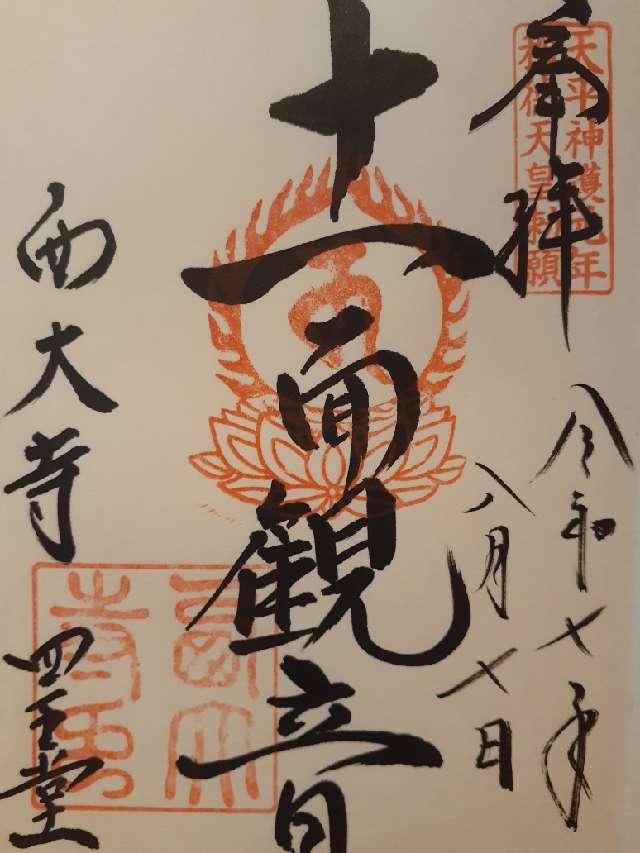 奉拝
天平神護元年
称徳天皇勅願
令和七年
八月十日
十一面観音
西大寺
四王堂